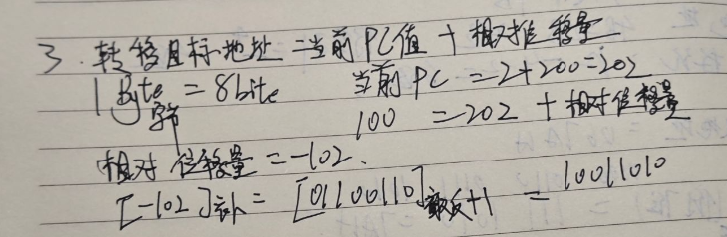 3. 转移目标地址 = 当前PC值 + 相对推移量
1 Byte = 8bite 当前PC = 2+200=202
字节 100 = 202 + 相对位移量
相对位移量 = -102.
[-102]补 = [01100110]取反+1 = 10011010